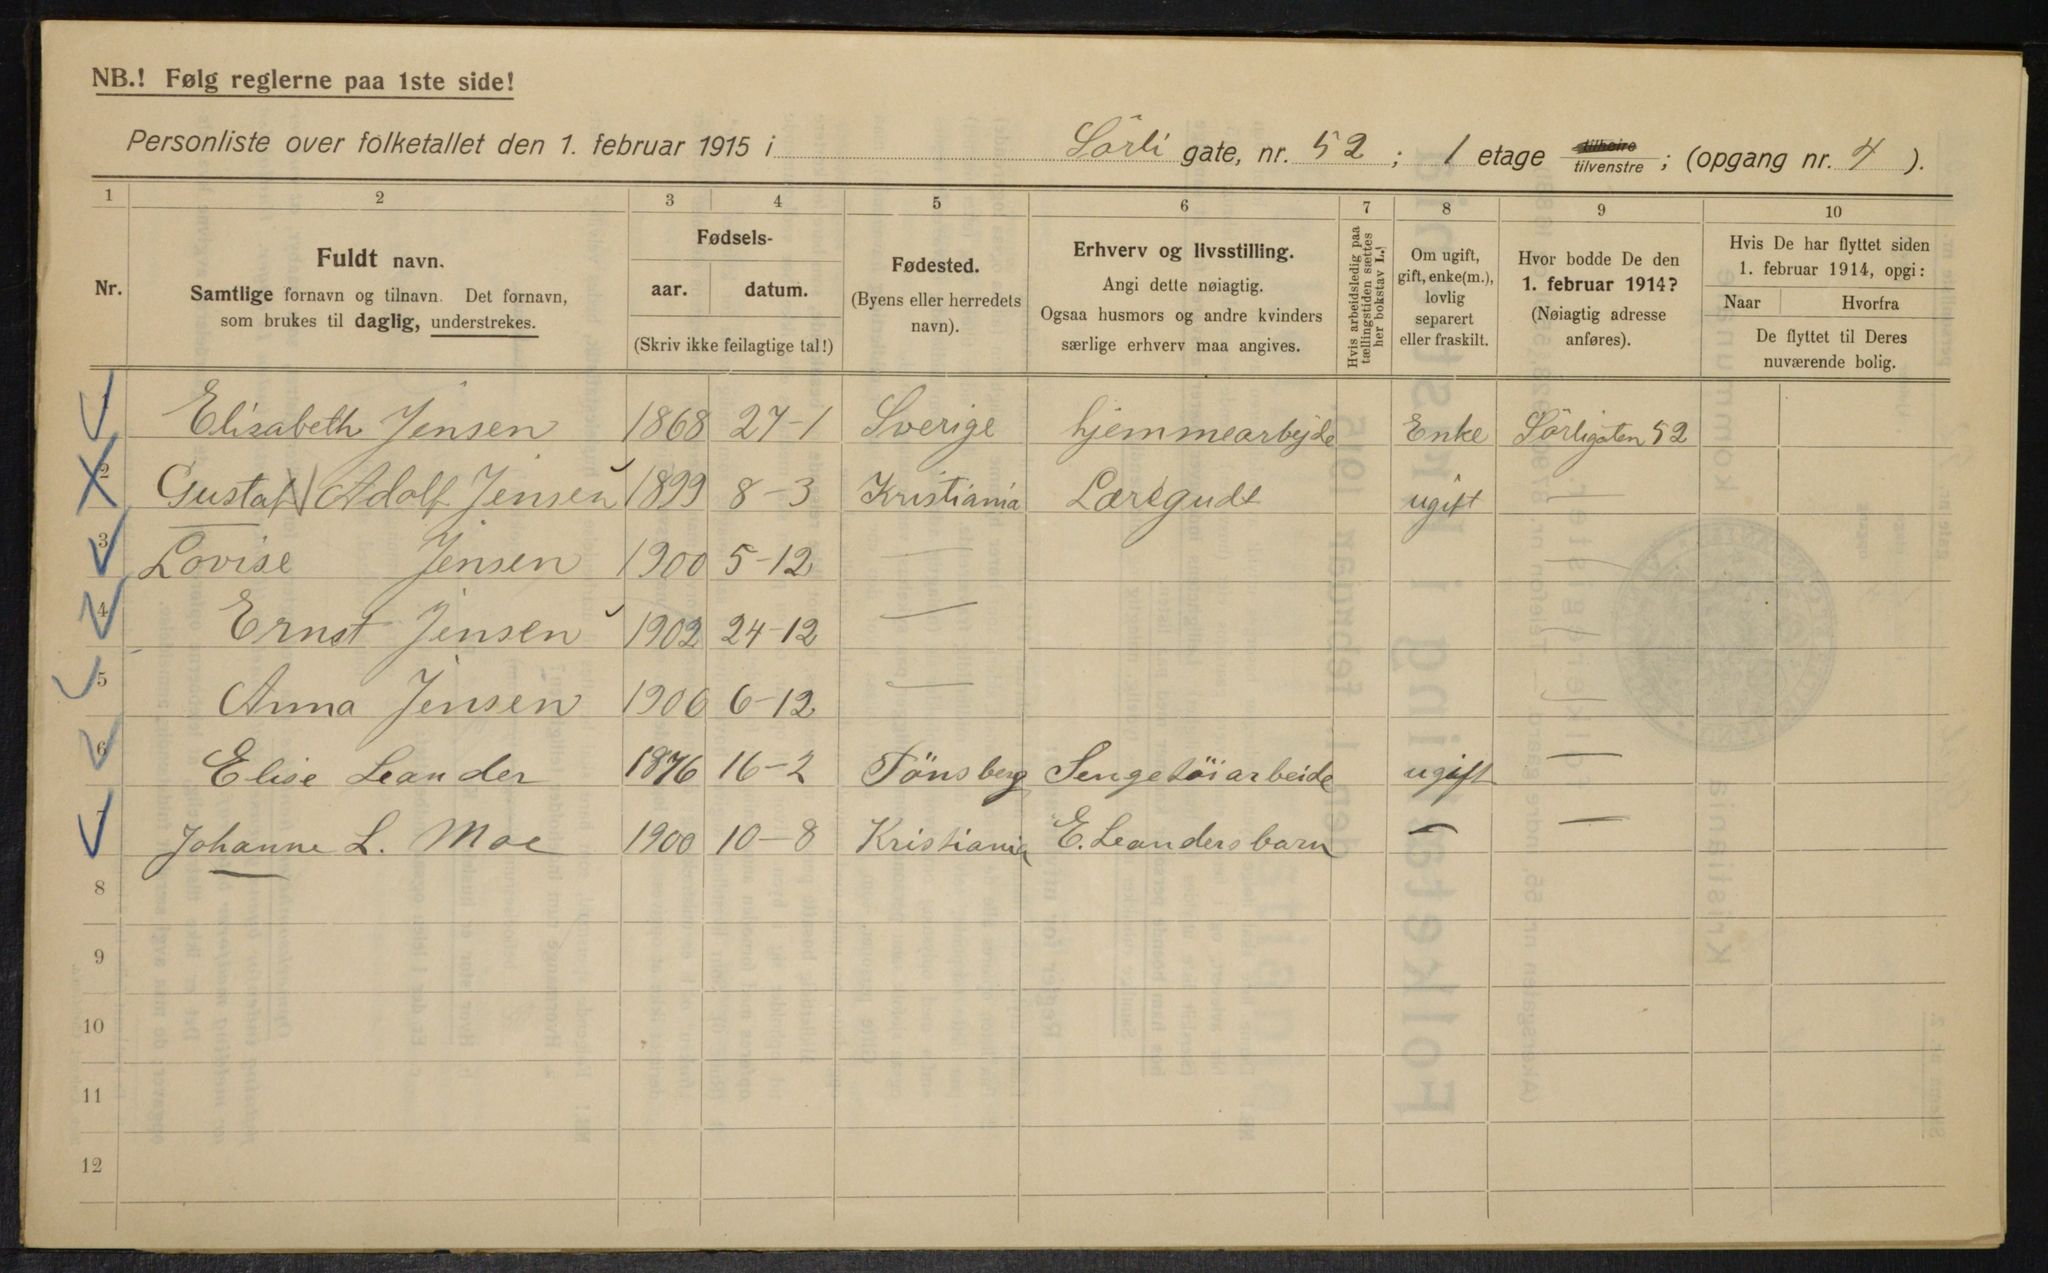 NB.! Følg reglerne paa 1ste side!
Personliste over folketallet den 1. februar 1915 i Sörli gate, nr. 52 ; 1 etage tilhøire tilvenstre ; (opgang nr. 4 ).
1 2 3 4 5 6 7 8 9 10
Nr.
Fuldt navn.
Samtlige fornavn og tilnavn. Det fornavn,
som brukes til daglig, understrekes.
Fødsels-
aar. datum.
(Skriv ikke feilagtige tal!)
Fødested.
(Byens eller herredets
navn).
Erhverv og livsstilling.
Angi dette nøiagtig.
Ogsaa husmors og andre kvinders
særlige erhverv maa angives.
Hvis arbeidsledig paa
tællingstiden sættes
her bokstav L.
Om ugift,
gift, enke(m.),
lovlig
separert
eller fraskilt.
Hvor bodde De den
1. februar 1914?
(Nøiagtig adresse
anføres).
Hvis De har flyttet siden
1. februar 1914, opgi:
Naar Hvorfra
De flyttet til Deres
nuværende bolig.
1 Elisabeth Jensen 1868 27-1 Sverige hjemmearbejde Enke Sörligaten 52
2 Gustaf Adolf Jensen 1899 8-3 Kristiania Læregudt ugift —
3 Lovise Jensen 1900 5-12 — —
4 Ernst Jensen 1902 24-12 — —
5 Anna Jensen 1906 6-12 — —
6 Elise Leander 1876 16-2 Tönsberg Sengetöiarbeide ugift —
7 Johanne L. Moe 1900 10-8 Kristiania E. Leanders barn — —
8
9
10
11
12